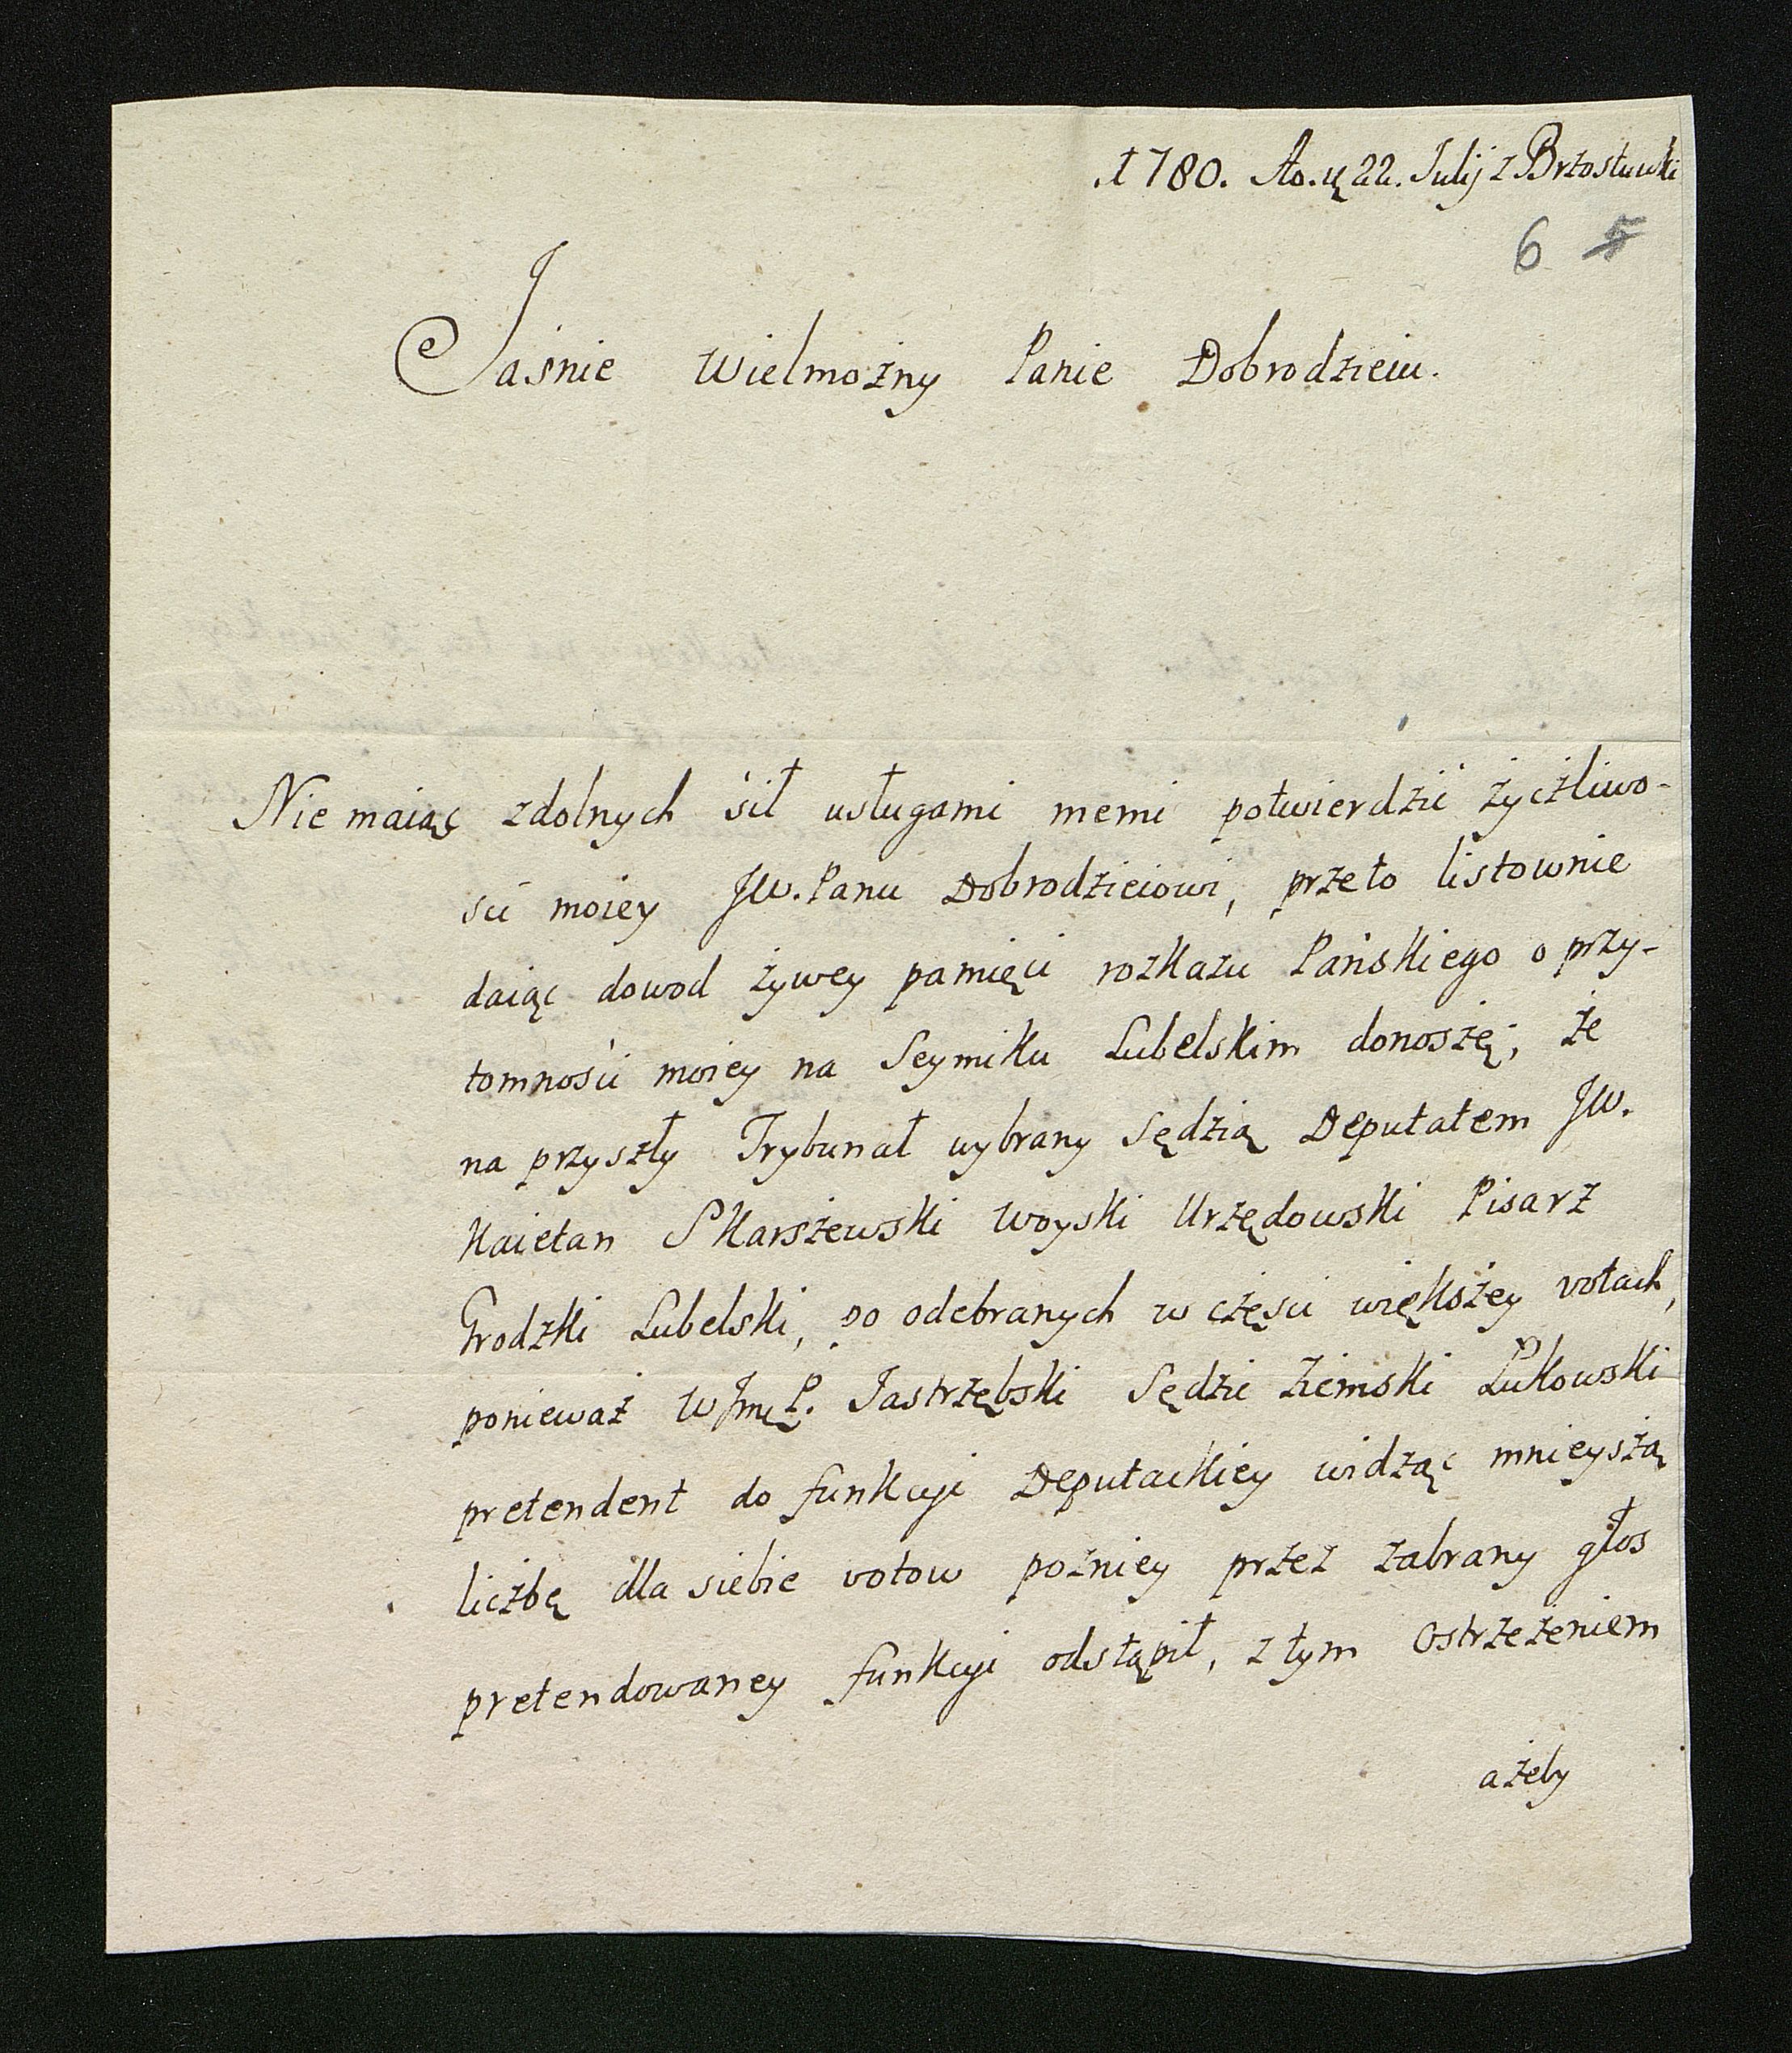 .1780. Ao. ę 22. Julij z Brzostuwki
6 5
Jaśnie Wielmożny Panie Dobrodzieiu.
Nie maiąc zdolnych śił usługami memi potwierdźić życżliwo-
ści moiey JW. Panu Dobrodzieiowi, przeto listownie
daiąc dowod żywey pamięci rozkazu Pańskiego o przy-
tomnośći moiey na Seymiku Lubelskim donoszę, że
na przyszły Trybunał wybrany Sędzią Deputatem JW.
Kaietan Skarszewski Woyski Urzędowski Pisarz
Grodzki Lubelski, po odebranych w częsci większey votach,
ponieważ WJmęP. Jastrzębski Sędzie Ziemski Łukowski
pretendent do funkcyi Deputackiey widząc mnieyszą
liczbę dla siebie votow pozniey przez zabrany głos
pretendowaney funkcyi odstąpił, z tym Ostrzezeniem
ażeby